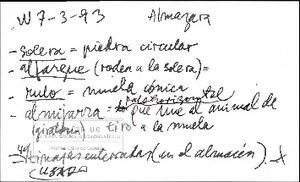 W 7-3-93 Almazara
- solera = piedra circular
- alfarque (rodea a la solera) =
- rulo = muela cónica
- almijarra = palo horizontal que une el animal de
(giratoria) tiro a la muela
- tinajas enterradas (en el almacén)